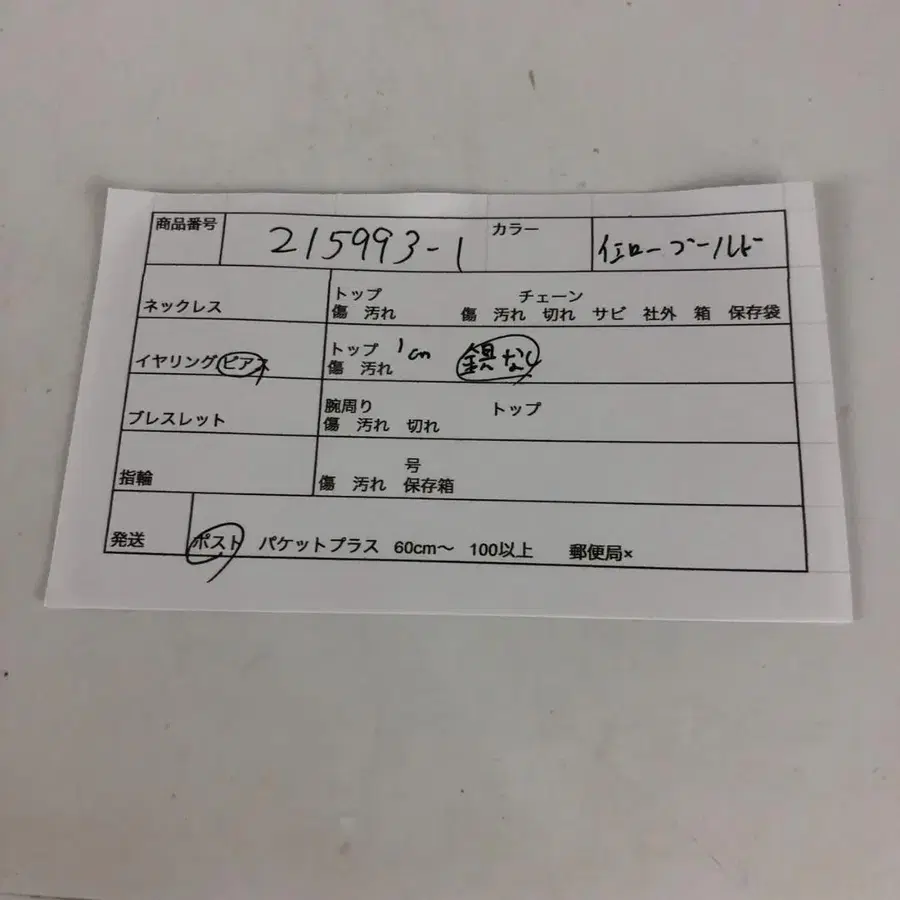 商品番号 215993-1 カラー イエローゴールド
ネックレス トップ チェーン
傷 汚れ 傷 汚れ 切れ サビ 社外 箱 保存袋
イヤリングピアス トップ 1cm なし
傷 汚れ
ブレスレット 腕周り トップ
傷 汚れ 切れ
指輪 号
傷 汚れ 保存箱
発送 ポスト パケットプラス 60cm〜 100以上 郵便局×